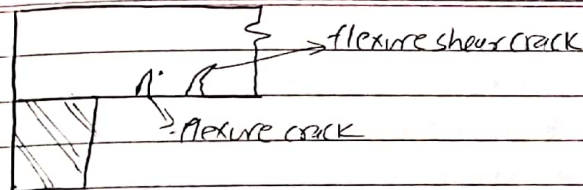 flexure shear crack
flexure crack